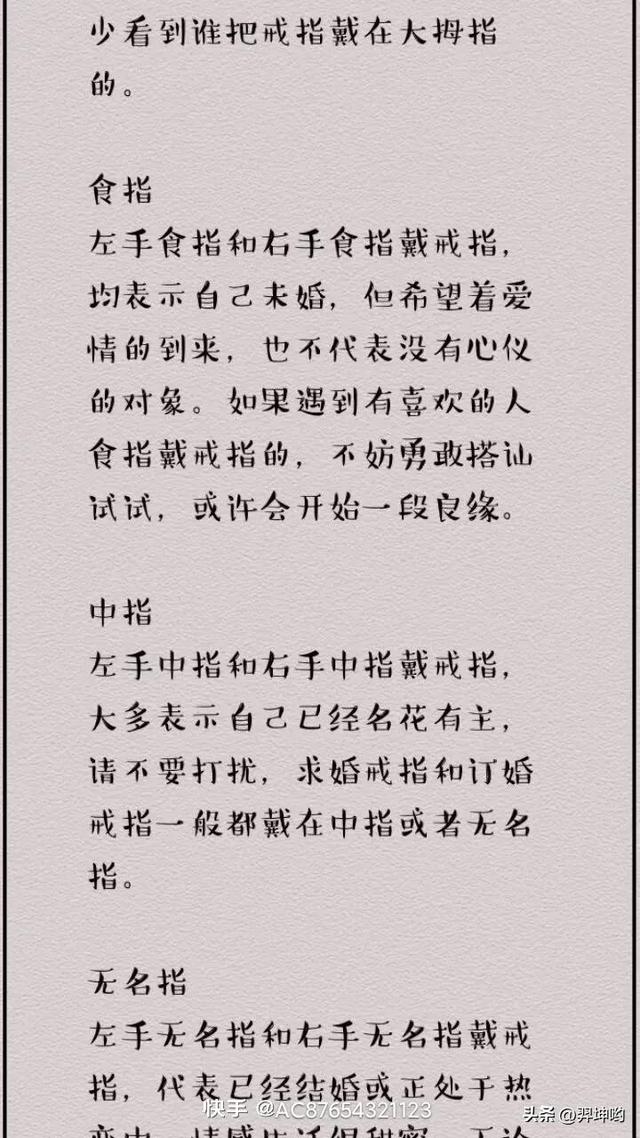 少看到谁把戒指戴在大拇指
的。
食指
左手食指和右手食指戴戒指，
均表示自己未婚，但希望着爱
情的到来，也不代表没有心仪
的对象。如果遇到有喜欢的人
食指戴戒指的，不妨勇敢搭讪
试试，或许会开始一段良缘。
中指
左手中指和右手中指戴戒指，
大多表示自己已经名花有主，
请不要打扰，求婚戒指和订婚
戒指一般都戴在中指或者无名
指。
无名指
左手无名指和右手无名指戴戒
指，代表已经结婚或正处于热
恋中，情感生活很甜蜜，无论
快手 @AC87654321123
头条 @羿坤哟